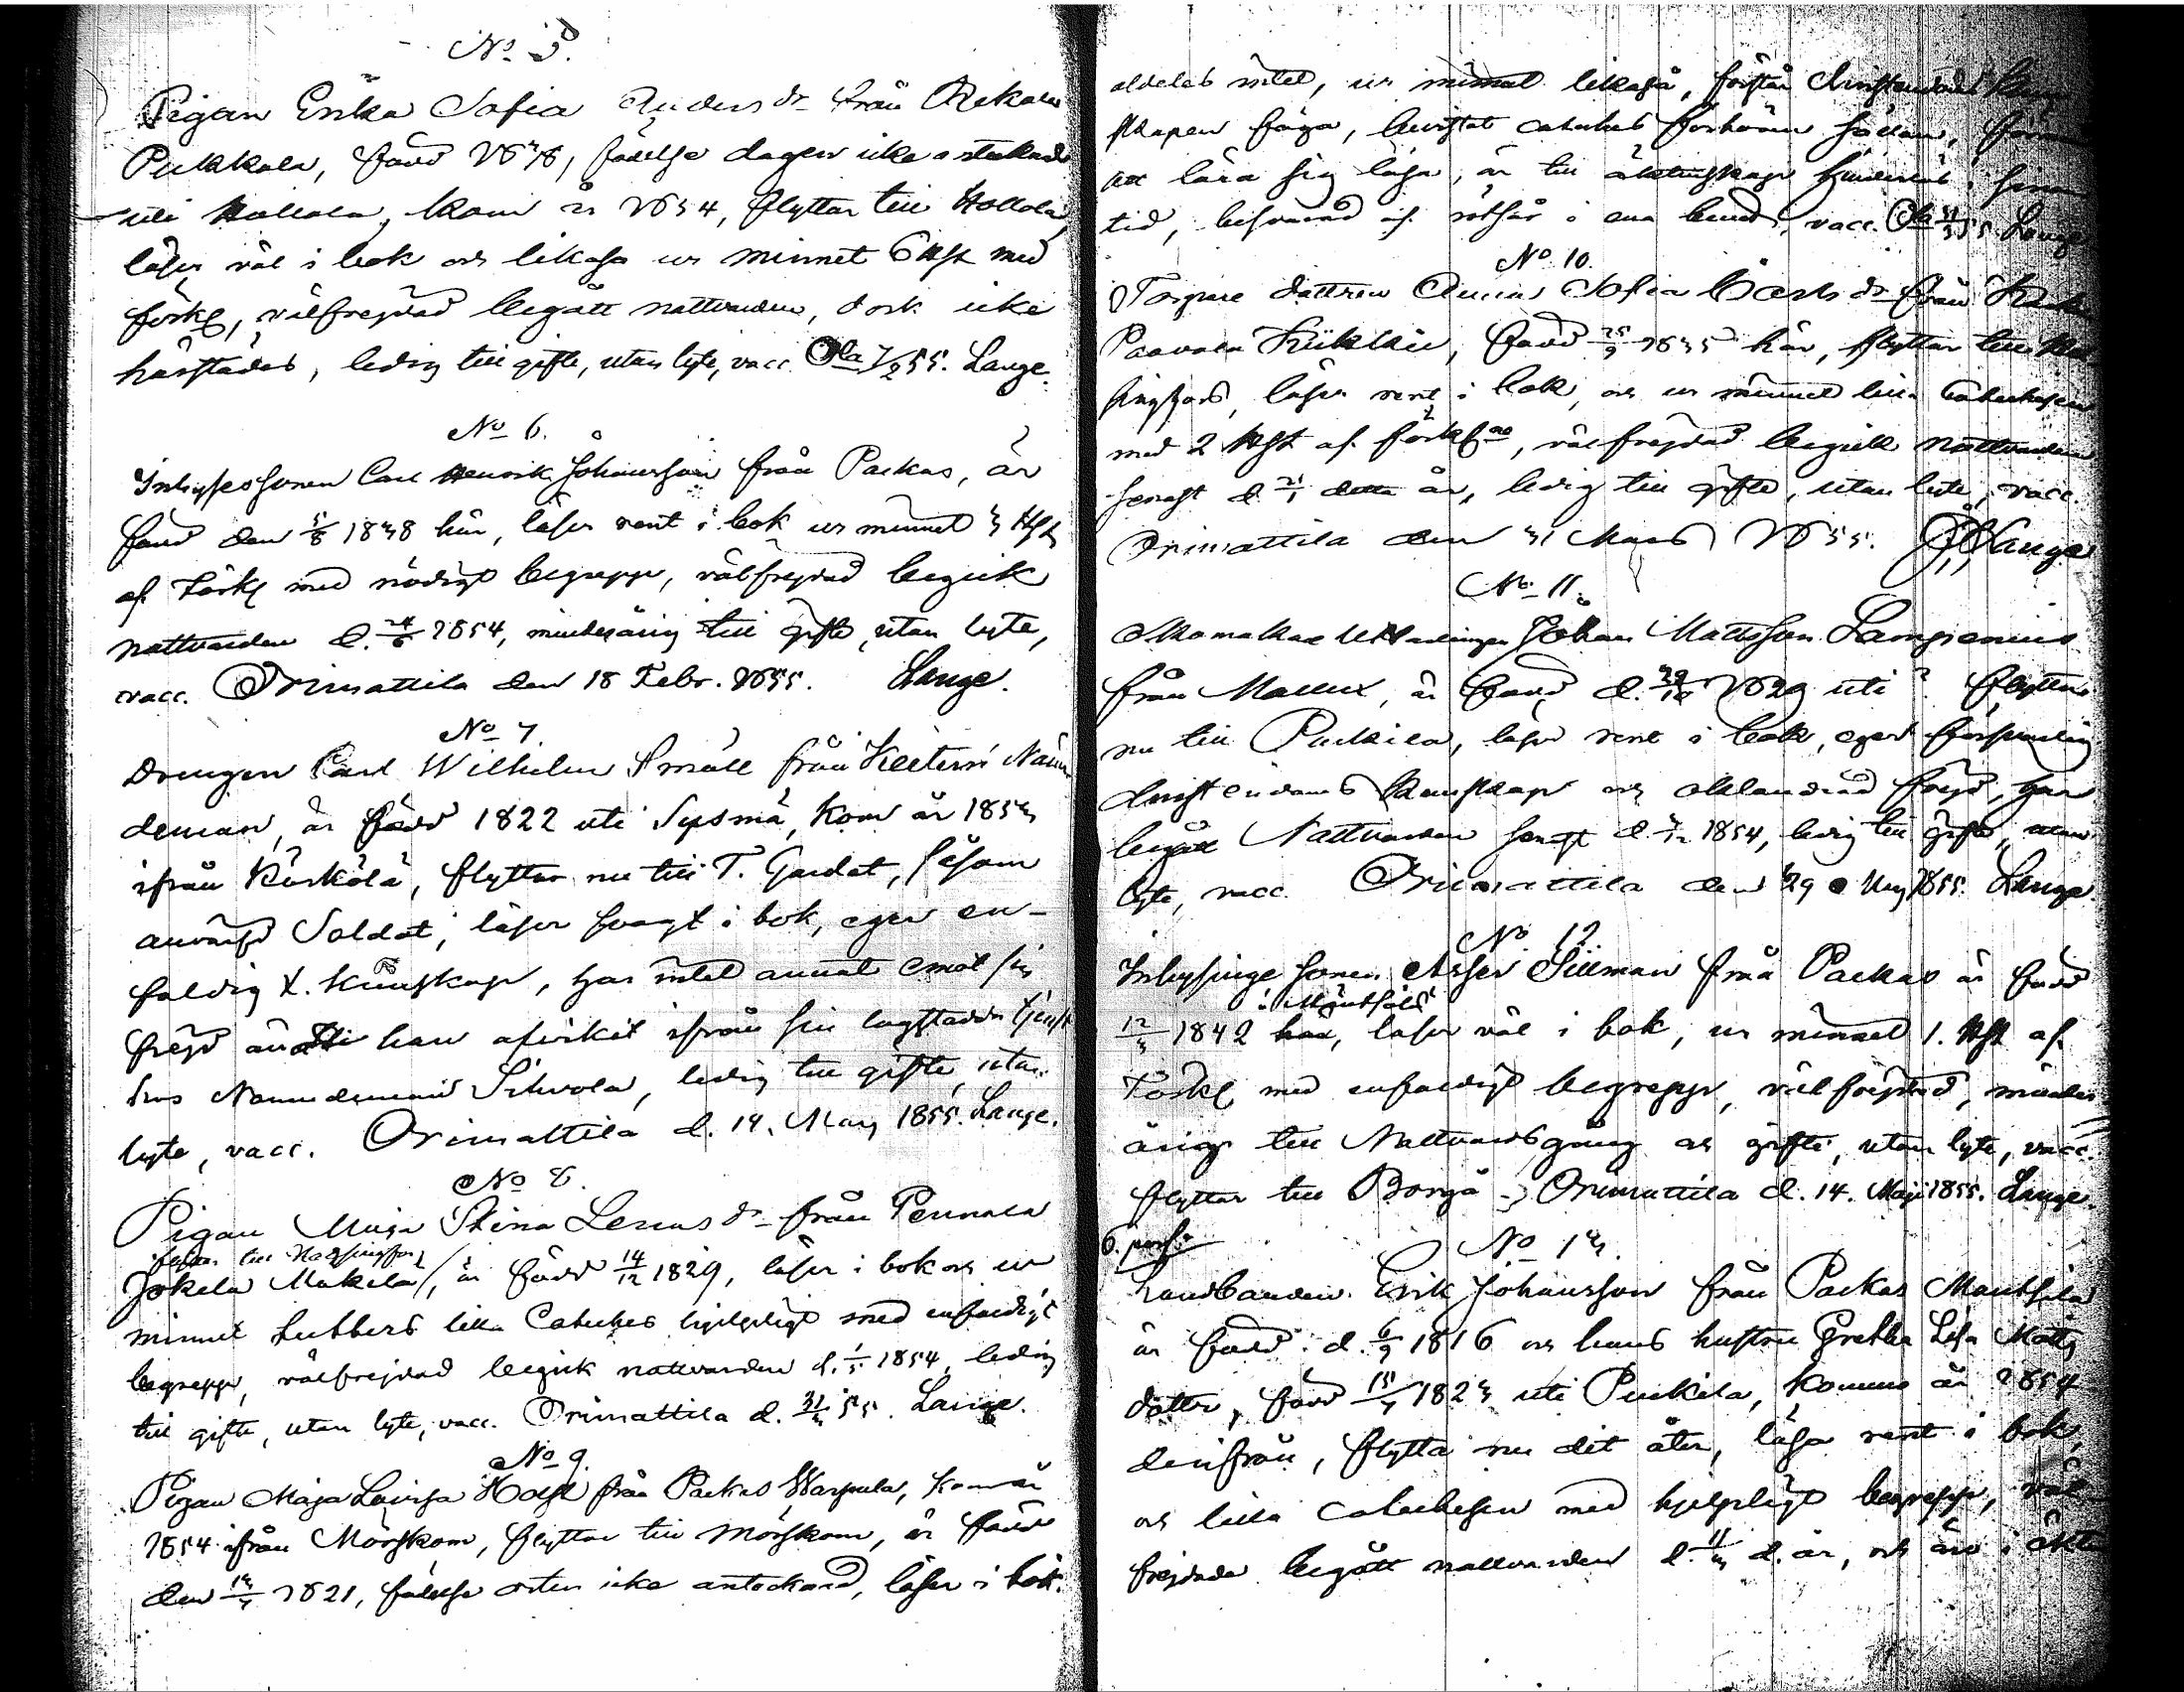 No 5.
Pigan Erika Sofia Anders dr från
Pukkala, född 18 /8, födelse dagen icke antecknad
uti Hollola, kom år 1854, flyttar till Hollola,
läser väl i bok och likaså ur minnet 6 HSt med
förkl, välfrejdad begått nattvarden, dock icke
härstädes, ledig till gifte, utan lyte, vacc. Ola 7/2 55. Lange.
No 6.
Inhyses sonen Carl Henrik Johansson från Packas, är
född den 5/8 1838 här, läser rent i bok ur minnet 3 HSt
af Förkl med nödigt begrepp, välfrejdad begick
nattvarden d. 24/6 1854, minderårig till gifte, utan lyte,
vacc. Orimattila den 18 Febr. 1855. Lange.
No 7.
Drengen Carl Wilhelm Småll från Keituri Näm
deman, är född 1822 uti Sysmä, kom år 1853
ifrån Kärkölä, flyttar nu till T. Gardet, såsom
anvärfd Soldat, läser svagt i bok, eger en-
faldig X. kunskap, har intet annat emot sin
frejd än att han afvikit ifrån sin lagstadda tjenst
hos Nämndeman Sitvola, ledig till gifte, utan
lyte, vacc. Orimattila d. 14. Maij 1855. Lange.
No 8.
Pigan Maja Stina Lenas dr från Pennala
flyttar till Helsingfors
Jokela Mäkelä/, är född 14/12 1829, läser i bok och ur
minnet Lubbers lilla Cateches hjelpligt med enfaldigt
begrepp, välfrejdad begick nattvarden d. 1/5 1854, ledig
till gifte, utan lyte, vacc. Orimattila d. 31/3 55. Lange.
No 9.
Pigan Maja Lovisa Holst från Packas Warpula, kom år
1854 ifrån Mörskom, flyttar till Mörskom, är född
den 13/7 1821, födelse orten icke antecknad, läser i bok
aldeles intet, ur minnet likaså, förstår Christendoms kun
skapen föga, bevistat cateches förhören sällan,
att lära sig läsa, är till äktenskap hinderlös i sinom
tid, besvärad af rötsår i ena benet, vacc. Ola 31/3 55 Lange
No 10.
Torpare dottren Anna Sofia Carls dr från
Paavola Kiikkiu, född 25/9 1835 här, flyttar till Hel
singfors, läser rent i bok, och ur minnet lilla Catechesen
med 2 HSt af förkl, välfrejdad begått nattvarden
senast d. 21/1 detta år, ledig till gifte, utan lyte, vacc.
Orimattila den 31 Mars 1855. Lange
No 11.
Johan Mattsson Langenius
från Mallux, är född d. 1829 uti ? flyttar
nu till Puckila, läser rent i bok, eger försvarlig
christendoms kunskap och oklandrad frejd, har
begått Nattvarden senast d. 1854, ledig till gifte, utan
lyte, vacc. Orimattila den 29 Maj 1855. Lange.
No 12.
Inhysinge sonen Asser Sillman från Packas är född
i Mäntsälä
12/3 1842 här, läser väl i bok, ur minnet 1. HSt af
Förkl med enfaldigt begrepp, välfrejdad, minder
årig till Nattvards gång och gifte, utan lyte, vacc.
flyttar till Borgå. Orimattila d. 14. Maji 1855. Lange.
6. pers.
No 13.
Landbonden Erik Johansson från Packas Mäntsälä
är född d. 6/9 1816 och hans hustru Gretha Lisa Matts
dotter, född 15/7 1823 uti Puckila, komne år 1854
derifrån, flytta nu dit åter, läsa rent i bok,
och lilla catechesen med hjelpligt begrepp, väl
frejdade begått nattvarden d. 11/3 d. år, och äro i äkta